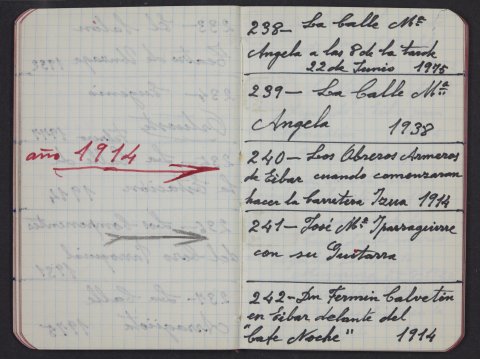 año 1914
238- La Calle Mª
Angela a las 8 de la tarde
22 de Junio 1975
239- La Calle Mª
Angela 1938
240- Los Obreros Armeros
de Eibar cuando comenzaron
hacer la Carretera Izua 1914
241- José Mª Iparraguirre
con su Guitarra
242- Dn Fermin Calvetón
en Eibar delante del
"Cafe Noche" 1914